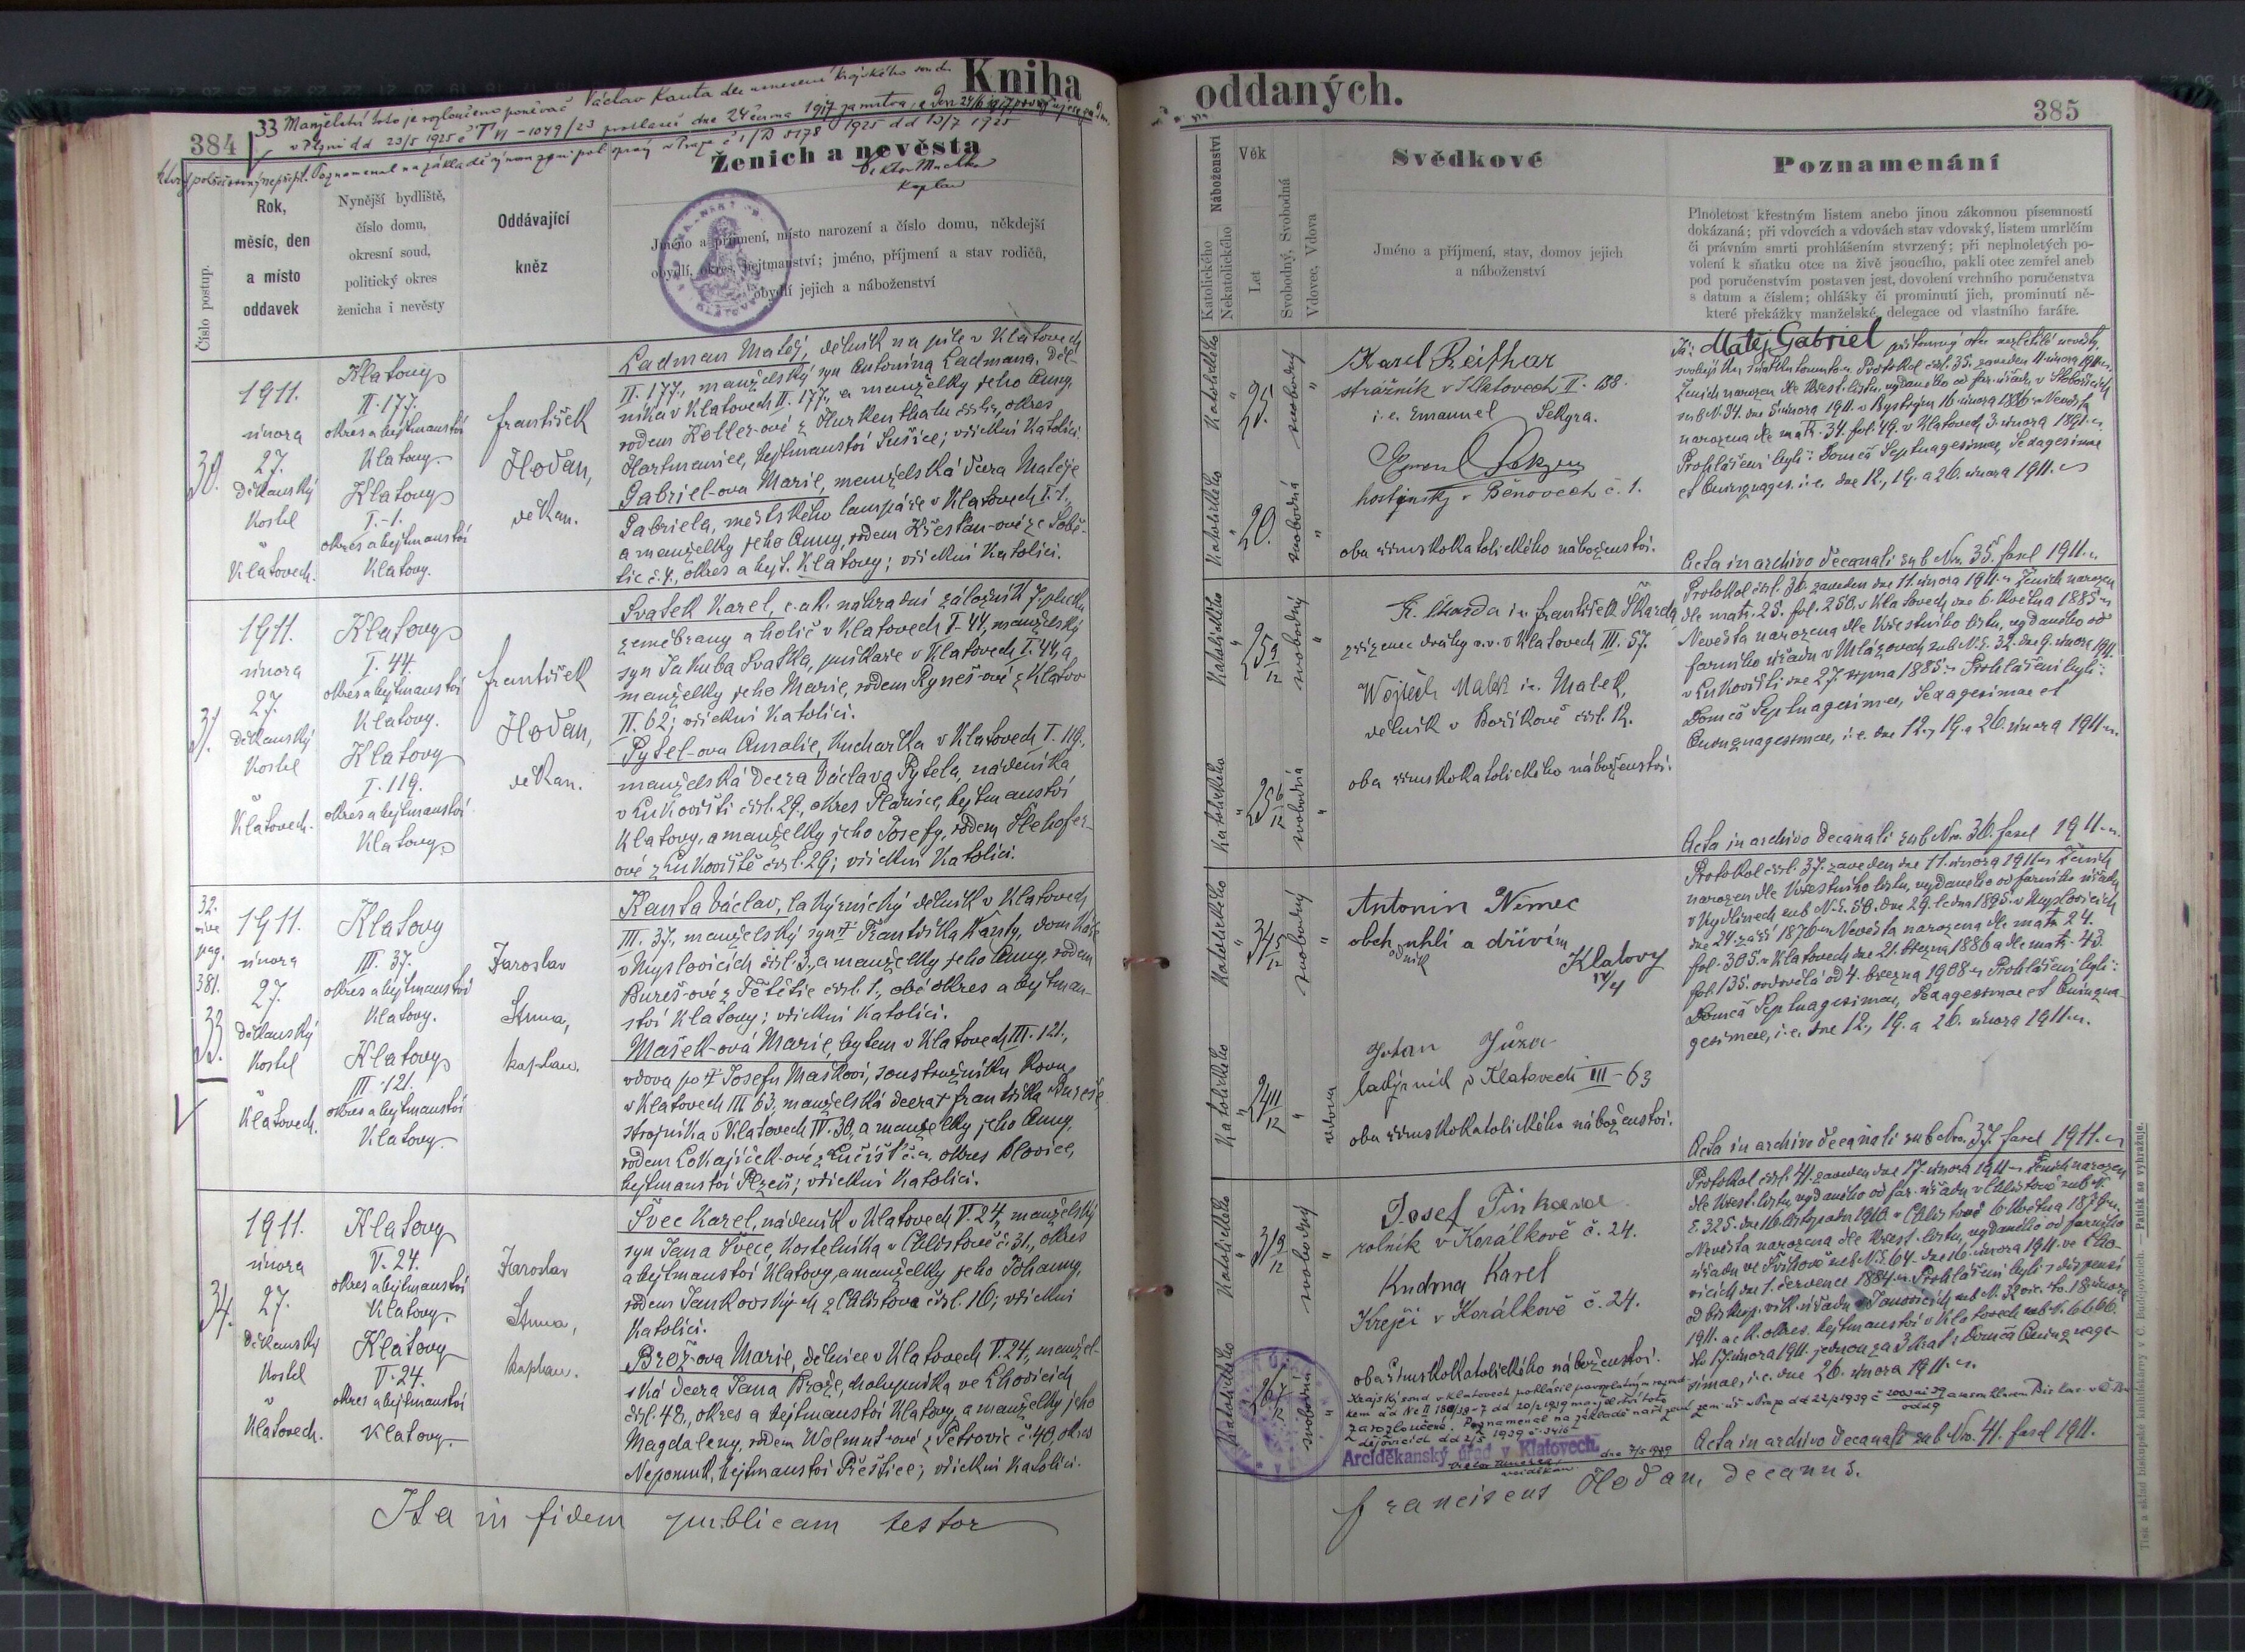 Kniha
384
33 Manželství toto je rozloučeno poněvač Václav Kanta dle usnesení krajského soudu
v Plzni dd 23/5 1925 č T VI - 1049/23 prohlášen dne 24 června 1917 za mrtva
Poznamenal na základě výnosu zemské pol. správy v Praze č 1/D 5178 1925 dd 13/7 1925
kaplan
Ženich a nevěsta
Číslo postup.
Rok,
měsíc, den
a místo
oddavek
Nynější bydliště,
číslo domu,
okresní soud,
politický okres
ženicha i nevěsty
Oddávající
kněz
Jméno a příjmení, místo narození a číslo domu, někdejší
obydlí, okres, hejtmanství; jméno, příjmení a stav rodičů,
obydlí jejich a náboženství
30.
1911.
února
27.
Děkanský
kostel
v
Klatovech.
Klatovy
II. 177.
okres a hejtmanství
Klatovy.
Klatovy
I.-1.
okres a hejtmanství
Klatovy.
František
Hoďan,
děkan.
Ladman Matěj, dělník na pile v Klatovech
II. 177., manželský syn Antonína Ladmana, děl-
níka v Klatovech II. 177., a manželky jeho Anny,
rodem Koller-ové z Hurkenthalu okres
Hartmanice, hejtmanství Sušice; všickni katolíci.
Gabriel-ova Marie, manželská dcera Matěje
Gabriela, městského lampáře v Klatovech I.-1.,
a manželky jeho Anny, rodem Křesťan-ové ze Sobě-
tic č. 4., okres a hejt. Klatovy; všickni katolíci.
31.
1911.
února
27.
Děkanský
kostel
v
Klatovech.
Klatovy
I. 44.
okres a hejtmanství
Klatovy.
Klatovy
I. 119.
okres a hejtmanství
Klatovy
František
Hoďan,
děkan.
Svatek Karel, c. a k. náhradní záložník 7. pluku
zeměbrany a holič v Klatovech I-44, manželský
syn Jakuba Svatka, puškaře v Klatovech I. 44, a
manželky jeho Marie, rodem Kyneš-ové z Klatov
II. 62; všickni katolíci.
Pytel-ova Amalie, kuchařka v Klatovech I. 119.,
manželská dcera Václava Pytela, nádeníka
v Lukovišti čísl. 29., okres Plánice, hejtmanství
Klatovy, a manželky jeho Josefy, rodem Štehofer-
ové z Lukoviště čísl. 29; všickni katolíci.
32.
vide
pag.
381.
33.
1911.
února
27.
Děkanský
kostel
v
Klatovech.
Klatovy
III. 37.
okres a hejtmanství
Klatovy.
Klatovy
III. 121.
okres a hejtmanství
Klatovy
Jaroslav
kaplan.
Kanta Václav, lakýrnický dělník v Klatovech
III. 37., manželský syn † Františka Kanty, domkáře
v Myslovicích čísl. 3., a manželky jeho Anny, rodem
Bureš-ové z Tětětic čísl. 1., obé okres a hejtman-
ství Klatovy; všickni katolíci.
Mašek-ová Marie, bytem v Klatovech III. 121.,
vdova po † Josefu Maškovi, soustružníku kovu
v Klatovech III 63., manželská dcera † Františka Bureše,
strojníka v Klatovech IV. 30, a manželky jeho Anny,
rodem Lokajíček-ové z okres Blovice,
hejtmanství Plzeň; všickni katolíci.
34.
1911.
února
27.
Děkanský
kostel
v
Klatovech.
Klatovy
V. 24.
okres a hejtmanství
Klatovy.
Klatovy
V. 24.
okres a hejtmanství
Klatovy.
Jaroslav
kaplan.
Švec Karel, nádeník v Klatovech V. 24, manželský
syn Jana Švece, kostelníka v Chlistově č. 31., okres
a hejtmanství Klatovy, a manželky jeho Johanny,
rodem Jankovských z Chlistova čísl. 16; všickni
katolíci.
Brož-ova Marie, dělnice v Klatovech V. 24, manžel-
ská dcera Jana Brože, chalupníka ve Lhovicích
čísl. 48., okres a hejtmanství Klatovy, a manželky jeho
Magdaleny, rodem Wolmut-ové z Petrovic č. 40, okres
Nepomuk, hejtmanství Přeštice; všickni katolíci.
Ita in fidem publicam testor
oddaných.
385
Náboženství
Katolického
Nekatolického
Věk
Let
Svobodný, Svobodná
Vdovec, Vdova
Svědkové
Jméno a příjmení, stav, domov jejich
a náboženství
Poznamenání
Plnoletost křestným listem anebo jinou zákonnou písemností
dokázaná; při vdovcích a vdovách stav vdovský, listem umrlčím
či právním smrti prohlášením stvrzený; při neplnoletých po-
volení k sňatku otce na živě jsoucího, pakli otec zemřel aneb
pod poručenstvím postaven jest, dovolení vrchního poručenstva
s datum a číslem; ohlášky či prominutí jich, prominutí ně-
které překážky manželské, delegace od vlastního faráře.
Katolického
25.
svobodný
Katolického
20.
svobodná
Karel Reithar
strážník v Klatovech II. 138.
i. e. Emanuel Sekyra.
hostinský v Běnovech č. 1.
oba římskokatolického náboženství.
Já: Matěj Gabriel přítomný otec nezletilé nevěsty,
svoluji ku sňatku tomuto. Protokol čísl. 35. zaveden 11. února 1911.
Ženich narozen dle křest. listu, vydaného od far. úřadu v
sub N. 34. dne 5. února 1911. v Bystrým 16. února 1886. Nevěsta
narozena dle matr. 34. fol. 49. v Klatovech 3. února 1891.
Prohlášení byli: Domcâ Septuagesimae, Sexagesimae
et Quinquages. i. e. dne 12., 19. a 26. února 1911.
Acta in archivo decanali sub Nro. 35. fascl 1911.
Katolického
25 9/12
svobodný
Katolického
25 6/12
svobodná
Fr. Škarda i. e. František Škarda
zřízenec dráhy v Klatovech III. 57.
Wojtěch Malek i. e. Malek,
dělník v Bořikově čísl. 12.
oba římskokatolického náboženství.
Protokol čísl. 36. zaveden dne 11. února 1911. Ženich narozen
dle matr. 25. fol. 250. v Klatovech dne 6. května 1885.
Nevěsta narozena dle křestního listu, vydaného od
farního úřadu v Mlázovech sub N. E. 32. dne 9. února 1911
v Lukovišti dne 27. srpna 1885. Prohlášeni byli:
Domcâ Septuagesimae, Sexagesimae et
Quinquagesimae, i. e. dne 12., 19. a 26. února 1911.
Acta in archivo decanali sub Nro. 36. fascl 1911.
Katolického
34 5/12
svobodný
Katolického
24 11/12
vdova
Antonin Němec
obchodník uhlí a dřívím
Klatovy
Johan Jůza
v Klatovech III-63
oba římskokatolického náboženství.
Protokol čísl. 37. zaveden dne 11. února 1911. Ženich
narozen dle křestního listu, vydaného od farního úřadu
v sub N. E. 50. dne 29. ledna 1895. v Myslovicích
dne 24. září 1876. Nevěsta narozena dle matr. 24.
fol. 305. v Klatovech dne 21. března 1886 a dle matr. 43.
fol. 135. ovdověla od 4. března 1908. Prohlášeni byli:
Domcâ Septuagesimae, Sexagesimae et Quinqua-
gesimae, i. e. dne 12., 19. a 26. února 1911.
Acta in archivo decanali sub Nro. 37. fascl 1911.
Katolického
31 9/12
svobodný
Katolického
26 7/12
svobodná
Josef
rolník v Korálkově č. 24.
Kudrna Karel
Krejčí v Korálkově č. 24.
oba římskokatolického náboženství.
Krajský soud v Klatovech prohlásil pravoplatným rozsud-
kem dd 20/2 1939 manželství toto
za rozloučené. Poznamenal na základě nařízení zem. úř. v Praze dd 22/2 1939
Arciděkanský úřad v Klatovech.
Protokol čísl. 41. zaveden dne 17. února 1911. Ženich narozen
dle křest. listu, vydaného od far. úřadu v Chlistově sub N.
E. 325. dne 16. listopadu 1910. v Chlistově 6. května 1879.
Nevěsta narozena dle křest. listu, vydaného od farního
úřadu ve Švihově sub N. E. 64. dne 16. února 1911. ve Lho-
vicích dne 1. července 1884. Prohlášeni byli s dispensí
od biskup. vik. úřadu v Janovicích
1911. a c. k. okres. hejtmanství v Klatovech sub N. 6666.
dto 17. února 1911. jednou za 3krát: Domcâ Quinquage-
simae, i. e. dne 26. února 1911.
Acta in archivo decanali sub Nro. 41. fascl 1911.
Franciscus Hoďan, decanus.
Tisk a sklad biskupské knihtiskárny v Č. Budějovicích. — Patisk se vyhražuje.